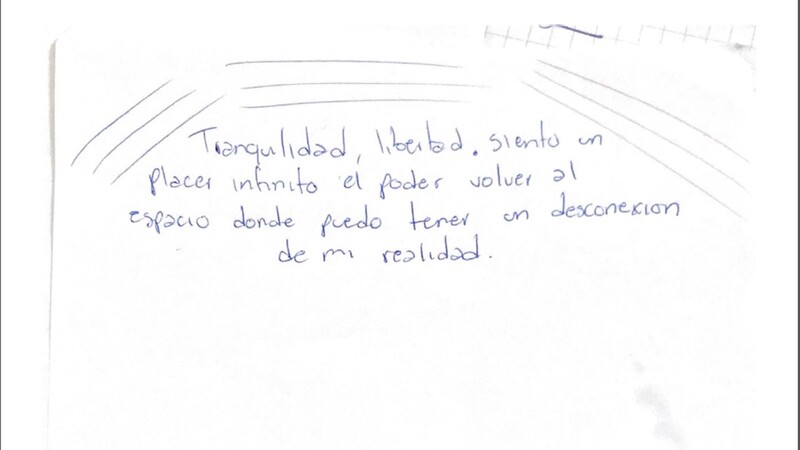 Tranqulidad, libertad. siento un
placer infinito el poder volver al
espacio donde puedo tener un desconexion
de mi realidad.